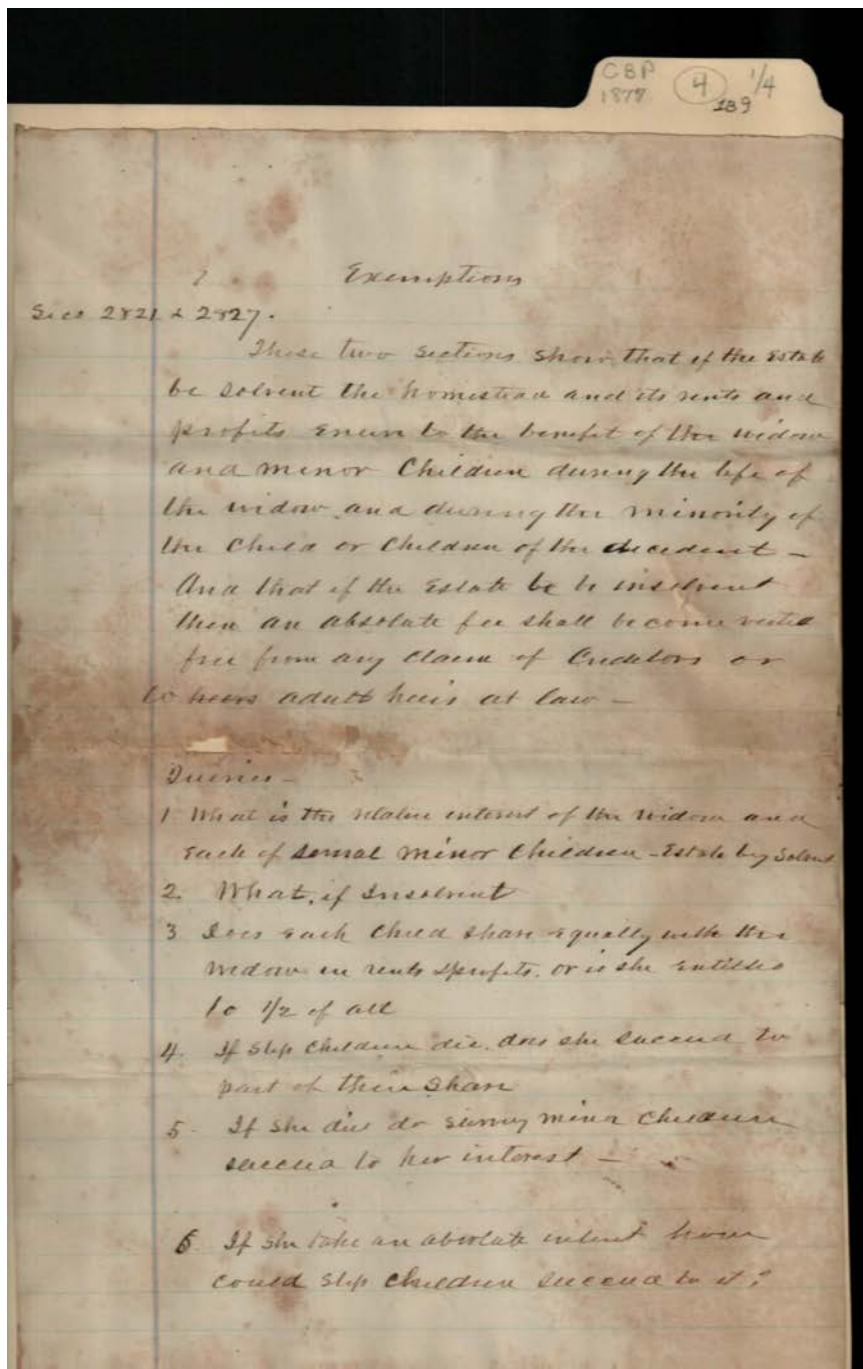 CBP 4 1/4
1877 189
Exemptions
Secs 2821 & 2827.
These two sections show that if the Estate
be solvent the homestead and its rents and
profits enure to the benefit of the widow
and minor Children during the life of
the widow and during the minority of
the Child or Children of the decedent —
And that if the Estate be insolvent
then an absolute fee shall become vested
free from any claim of Creditors or
adult heirs at law —
Queries —
1 What is the relative interest of the widow and
Each of several minor Children - Estate being Solvent
2. What, if Insolvent
3 Does Each Child share equally with the
widow in rents & profits. or is she entitled
to 1/2 of all
4. If step Children die. does she succeed to
part of their Share
5. If she dies do surviving minor Children
succeed to her interest —
6. If she take an absolute interest how
could step Children succeed to it?